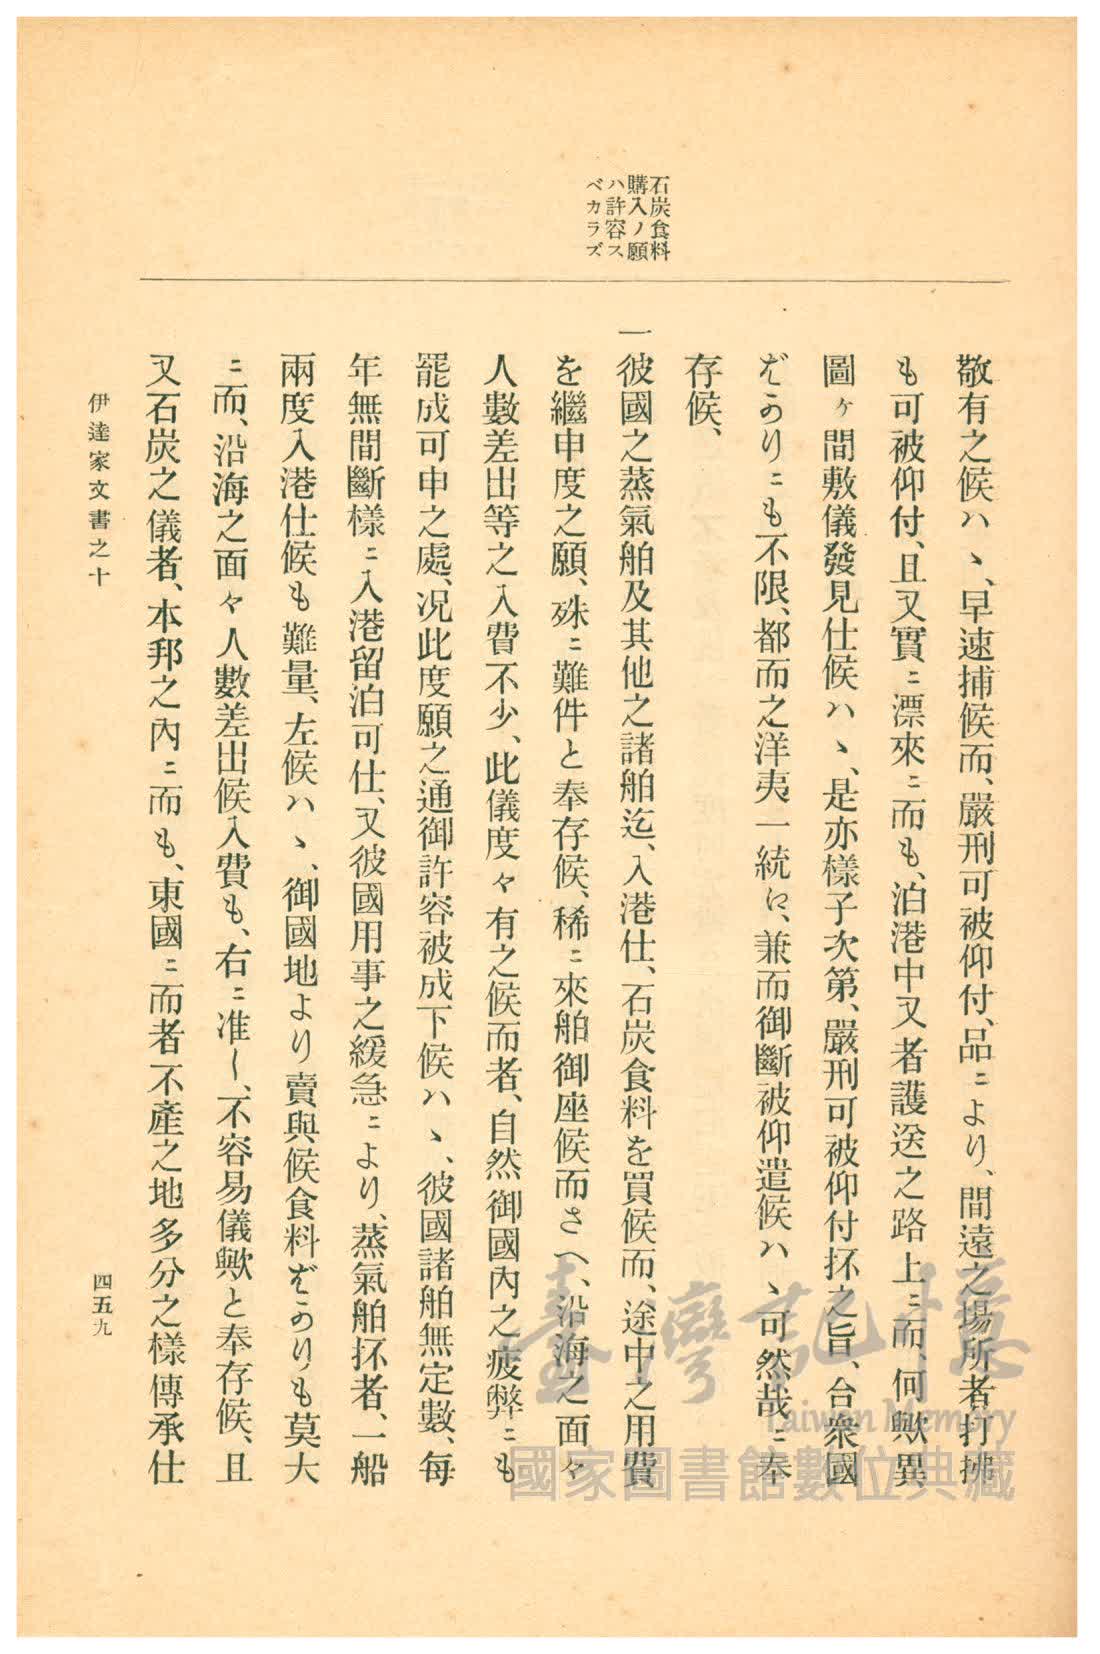 石炭食料
購入ノ願
ハ許容ス
ベカラズ
敬有之候ハヽ、早速捕候而、嚴刑可被仰付、品ニより、間遠之場所者打拂
も可被仰付、且又實ニ漂來ニ而も、泊港中又者護送之路上ニ而、何歟異
圖ヶ間敷儀發見仕候ハヽ、是亦樣子次第、嚴刑可被仰付抔之旨、合衆國
ばかりニも不限、都而之洋夷一統に、兼而御斷被仰遣候ハヽ可然哉ニ奉
存候、
一彼國之蒸氣舶及其他之諸舶迄、入港仕、石炭食料を買候而、途中之用費
を繼申度之願、殊ニ難件と奉存候、稀ニ來舶御座候而さへ、沿海之面々
人數差出等之入費不少、此儀度々有之候而者、自然御國內之疲弊ニも
罷成可申之處、況此度願之通御許容被成下候ハヽ、彼國諸舶無定數、每
年無間斷樣ニ入港留泊可仕、又彼國用事之緩急ニより、蒸氣舶抔者、一船
兩度入港仕候も難量、左候ハヽ、御國地より賣與候食料ばかりも莫大
ニ而、沿海之面々人數差出候入費も、右ニ准し、不容易儀歟と奉存候、且
又石炭之儀者、本邦之內ニ而も、東國ニ而者不產之地多分之樣傳承仕
伊達家文書之十
四五九
臺灣記憶
Taiwan Memory
國家圖書館數位典藏